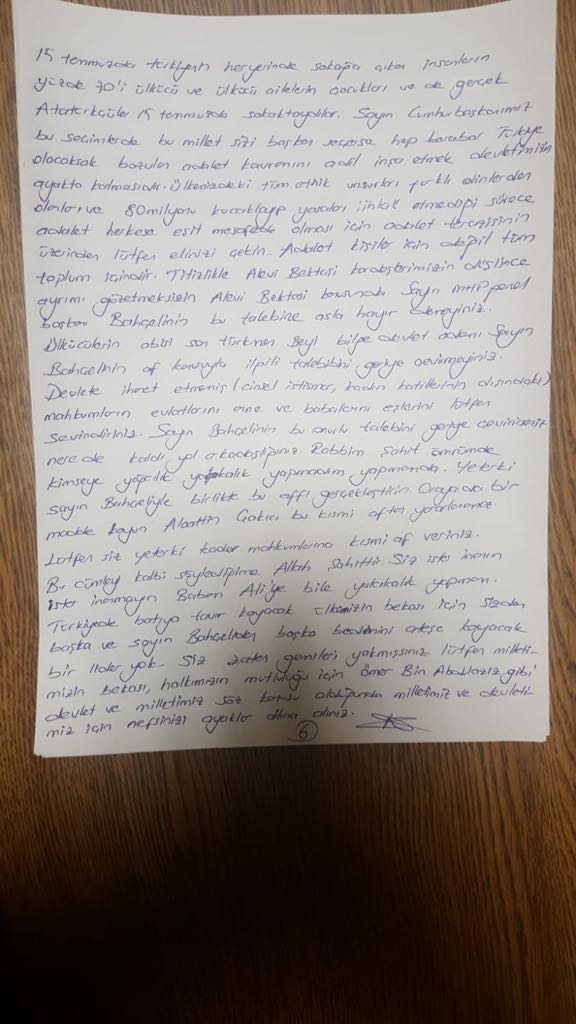 15 temmuzda türkiyenin heryerinde sokağa çıkan insanların
yüzde 70'i ülkücü ve ülkücü ailelerin çocukları ve de gerçek
Atatürkçüler 15 temmuzda sokaktaydılar. Sayın Cumhurbaşkanımız
bu seçimlerde bu millet sizi başkan seçerse hep beraber Türkiye
olacaksak bozulan adalet kavramını adil inşa etmek devletimizin
ayakta kalmasıdır. Ülkemizdeki tüm etnik unsurları farklı dinlerden
olanları ve 80 milyonu kucaklayıp yasaları ihlal etmediği sürece
adalet herkese eşit mesafede olması için adalet terazisinin
üzerinden lütfen elinizi çekin. Adalet kişiler için değil tüm
toplum içindir. Titizlikle Alevi Bektaşi kardeşlerimizin düşünce
ayrımı gözetmeksizin Alevi Bektaşi konusunda Sayın MHP genel
başkanı Bahçelinin bu talebine asla hayır demeyiniz.
Ülkücülerin abisi son türkmen Beyi bilge devlet adamı Sayın
Bahçelinin af konusuyla ilgili talebini geriye çevirmeyiniz.
Devlete ihanet etmemiş (cinsel istismar, kadın katillerinin dışındaki)
mahkumların evlatlarını anne ve babalarını eşlerini lütfen
sevindiriniz. Sayın Bahçelinin bu onurlu talebini geriye çevirirseniz
nerede kaldı yol arkadaşlığınız. Rabbim Şahit ömrümde
kimseye yalakalık yapmadım yapmamda. Yeterki
sayın Bahçeliyle birlikte bu affı gerçekleştirin Oraya da bir
madde koyun Alaattin Çakıcı bu kısmi aftan yararlanamaz
Lütfen siz yeterki kader mahkumlarına kısmi af veriniz.
Bu cümleyi kalbi söylediğime Allah Şahittir. Siz ister inanın
ister inanmayın Babam Ali'ye bile yalakalık yapmam.
Türkiyede batıya tavır koyacak ülkemizin bekası için sizden
başka ve sayın Bahçeliden başka bedenini ateşe koyacak
bir lider yok. Siz zaten gemileri yakmışsınız lütfen milleti-
mizin bekası, halkımızın mutluluğu için Ömer Bin Abdülaziz gibi
devlet ve milletimiz söz konusu olduğunda milletimiz ve devleti-
miz için nefsinizi ayaklar altına alınız.
6